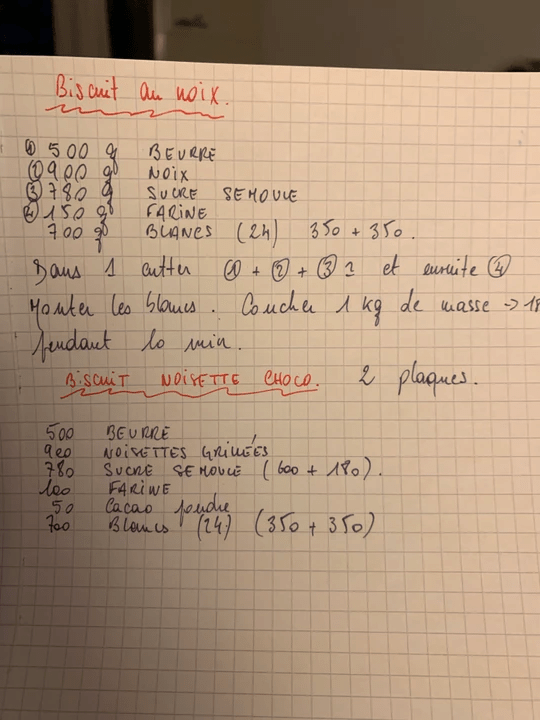 Biscuit au noix.
① 500 g BEURRE
② 900 g NOIX
③ 780 g SUCRE SEMOULE
④ 150 g FARINE
700 g BLANCS (24) 350 + 350.
Dans 1 cutter ① + ② + ③ et ensuite ④
Monter les blancs. Coucher 1 kg de masse → 18
pendant 10 min.
BISCUIT NOISETTE CHOCO. 2 plaques.
500 BEURRE
900 NOISETTES GRILLÉES
780 SUCRE SEMOULE (600 + 180).
100 FARINE
50 Cacao poudre
700 Blancs (24) (350 + 350)